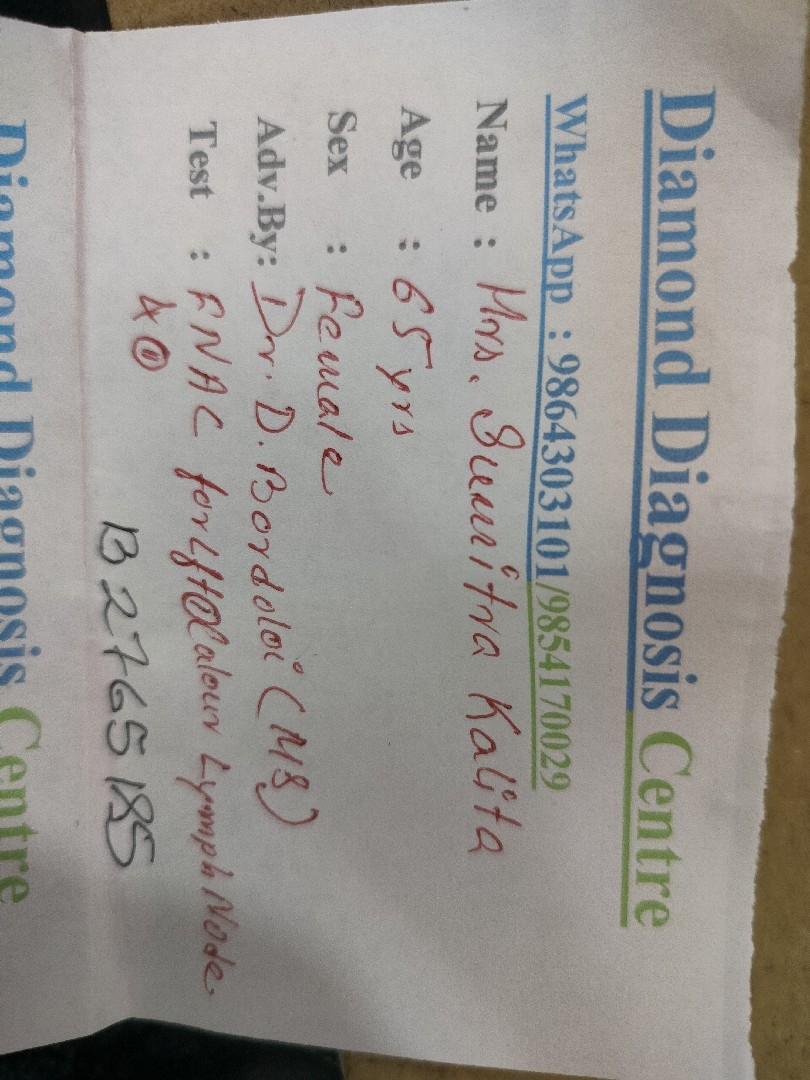 Diamond Diagnosis Centre
WhatsApp : 9864303101/9854170029
Name : Mrs. Sumitra Kalita
Age : 65 yrs
Sex : Female
Adv.By: Dr. D. Bordoloi (MS)
Test : FNAC for Lymph Node
B2765185
Diamond Diagnosis Centre